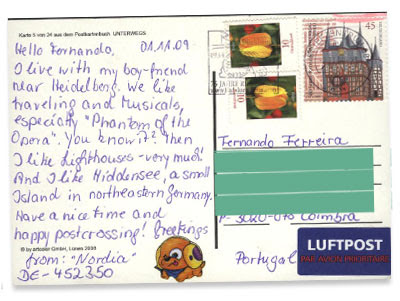 Karte 5 von 24 aus dem Postkartenbuch UNTERWEGS
Hello Fernando, 01.11.09
I live with my boy-friend
near Heidelberg. We like
traveling and Musicals,
especially "Phantom of the
Opera". You know it? Then
I like Lighthouses - very much!
And I like Hiddensee, a small
Island in northeastern Germany.
Have a nice time and
happy postcrossing! Greetings
from: "Nordia"
DE-452350
© by artcolor GmbH, Lünen 2008
45
10
10
Fernando Ferreira
Coimbra
Portugal
LUFTPOST
PAR AVION PRIORITAIRE